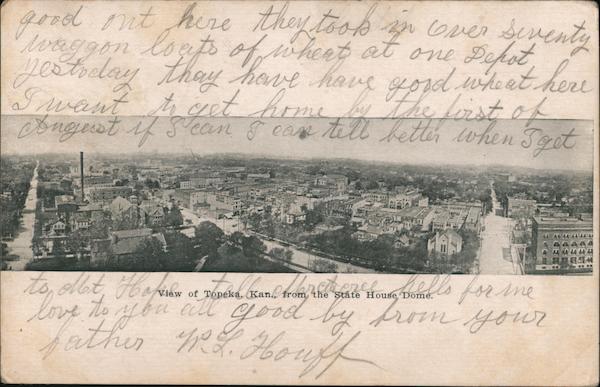 good out here they took in over seventy
waggon loats of wheat at one Depot
yestoday thay have have good wheat here
I want to get home by the first of
August if I can I can tell better when I get
View of Topeka, Kan., from the State House Dome.
to Mt Hope tell
hello for me
love to you all good by from your
father W. L. Houff